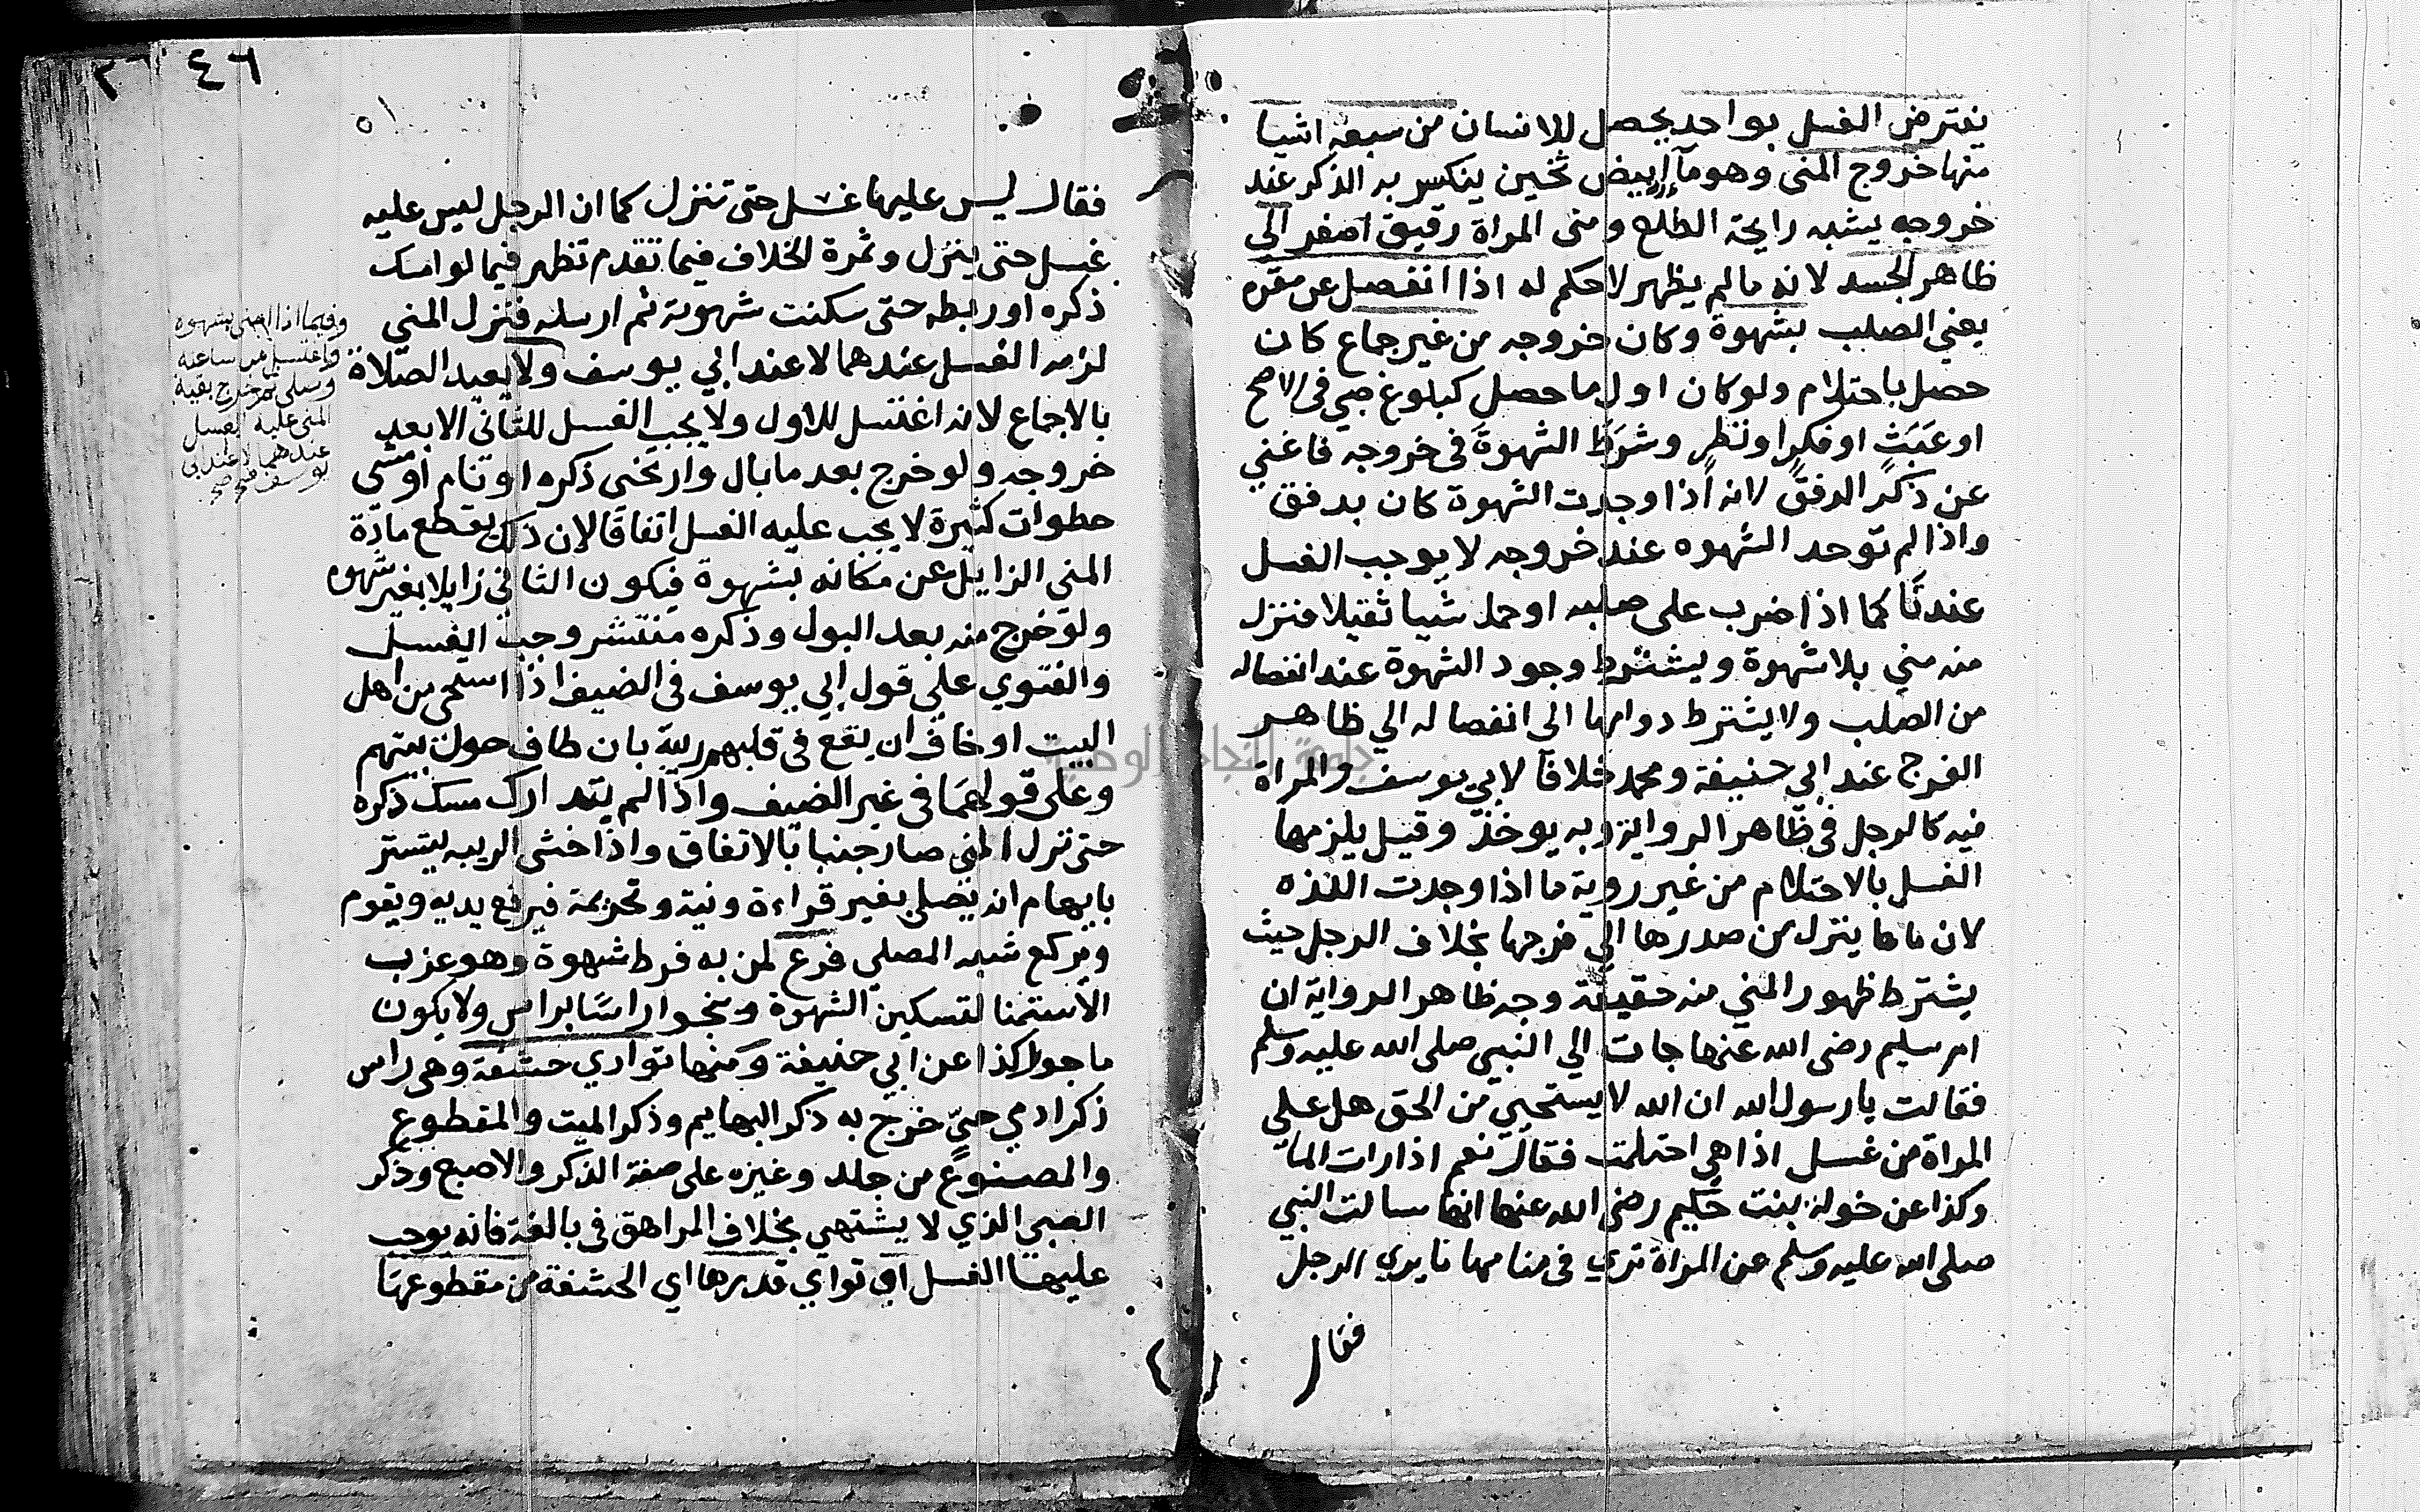 يفترض الغسل بواحد يحصل للانسان من سبعة اشيا
منها خروج المني وهو مآ ابيض ثخين ينكسر به الذكر عند
خروجه يشبه رايحة الطلع ومنى المراة رقيق اصفر الي
ظاهر الجسد لانه مالم يظهر لاحكم له اذا انفصل عن مقره
يعني الصلب بشهوة وكان خروجه من غير جماع كان
حصل باحتلام ولو كان اول ما حصل كبلوغ صبي فى الاصح
او عَبَثٍ او فكرٍ او نظرٍ وشرَط الشهوةَ فى خروجه فاغني
عن ذكر الدفق لانه اذا وجدت الشهوة كان بدفق
واذا لم توحد الشهوه عند خروجه لا يوجب الغسل
عندنَا كما اذا ضرب على صلبه او حمل شيا ثقيلا فنزل
منه مني بلا شهوة ويشترط وجود الشهوة عند انفصاله
من الصلب ولا يشترط دوامها الى انفصاله الي ظاهر
الفرج عند ابي حنيفة ومحمد خلافاً لابي يوسف والمراة
فيه كالرجل فى ظاهر الرواية وبه يوخذ وقيل يلزمها
الغسل بالاحتلام من غير روية ما اذا وجدت اللذه
لان ماها ينزل من صدرها الي فرجها بخلاف الرجل حيث
يشترط ظهور المني منه حقيقة وجه ظاهر الرواية ان
ام سليم رضى الله عنها جات الي النبي صلى الله عليه وسلم
فقالت يا رسول الله ان الله لا يستحيي من الحق هل علي
المراة من غسل اذا هي احتلمت فقال نعم اذا رات المآ
وكذا عن خولة بنت حكيم رضى الله عنها انها سالت النبي
صلى الله عليه وسلم عن المراة تري فى منامها ما يري الرجل
فقال
٤٦
فقال ليس عليها غسل حتى تنزل كما ان الرجل ليس عليه
غسل حتى ينزل وثمرة الخلاف فيما تقدم تظهر فيما لو امسك
ذكره او ربطه حتى سكنت شهوته ثم ارسله فنزل المني
لزمه الغسل عندهما لا عند ابي يوسف ولا يعيد الصلاة
بالاجماع لانه اغتسل للاول ولا يجب الغسل للثاني الا بعد
خروجه ولو خرج بعد ما بال وارتخى ذكره او نام او مشى
خطوات كثيرة لا يجب عليه الغسل اتفاقا لان ذلك يقطع مادة
المني الزايل عن مكانه بشهوة فيكون الثاني زايلا بغير شهوه
ولو خرج منه بعد البول وذكره منتشر وجب الغسل
والفتوي علي قول ابي يوسف فى الضيف اذا استحى من اهل
البيت او خاف ان يقع فى قلبهم ريبة بان طاف حول بيتهم
وعلى قولهما في غير الضيف واذا لم يتدارك مسك ذكره
حتى نزل المني صار جنبا بالاتفاق واذا خشى الريبه يتستر
بايهام انه يصلي بغير قراءة ونية وتحريمة فيرفع يديه ويقوم
ويركع شبه المصلي فرع لمن به فرط شهوة وهو عزب
الاستمنا لتسكين الشهوة وينجو راسًا براس ولا يكون
ماجورا كذا عن ابي حنيفة ومنها تواري حشفة وهى راس
ذكر ادمي حيّ خرج به ذكر البهايم وذكر الميت والمقطوع
والمصنوع من جلد وغيره على صفة الذكر والاصبع وذكر
الصبي الذي لا يشتهي بخلاف المراهق في بالغة فانه يوجب
عليها الغسل او تواري قدرها اي الحشفة من مقطوعها
وفيما اذا امنى بشهوه
واغتسل من ساعته
وصلى ثم خرج بقية
المنى عليه الغسل
عندهما لا عند ابى
يوسف صح